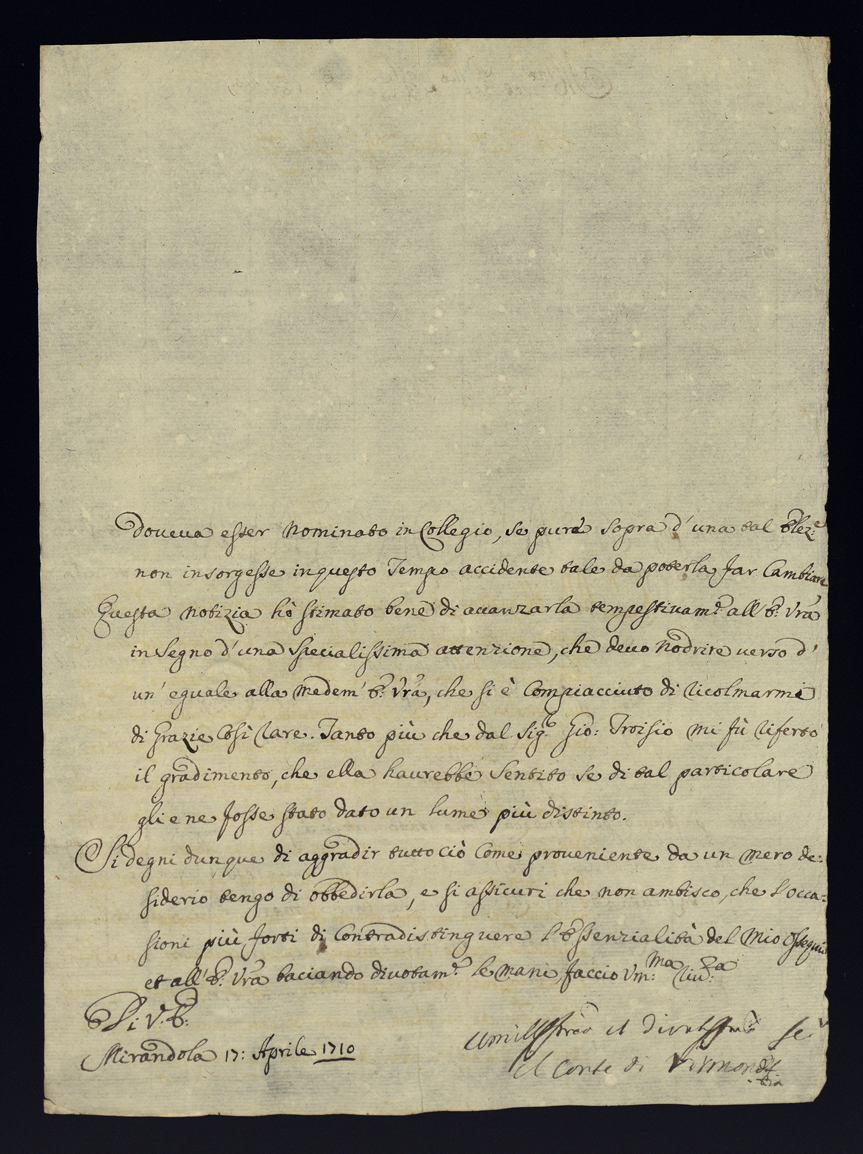 doueua esser nominato in Collegio, se pure sopra d'una tal Elez.e
non insorgesse in questo Tempo accidente tale da poterla far Cambiare
Questa notizia hò stimato bene di auanzarla tempestiuam.e all'E. Vrã
in segno d'una specialissima attenzione, che deuo nodrire uerso d'
un'eguale alla medem' E. Vrã, che si è Compiacciuto di ricolmarmi
di Grazie Così rare. Tanto più che dal Sig.r Gio: Troisio mi fù riferto
il gradimento, che ella haurebbe Sentito se di tal particolare
gliene fosse stato dato un lume più distinto.
Si degni dunque di aggradir tutto ciò Come proueniente da un mero de:
siderio tengo di obbedirla, e si assicuri che non ambisco, che l'occa:
sioni più forti di Contradistinguere l'Essenzialità del Mio Ossequio
et all'E. Vrã baciando diuotam.e le mani, faccio Vm:ma Riu:za
Di V. E.
Mirandola 17: Aprile 1710
il Conte di